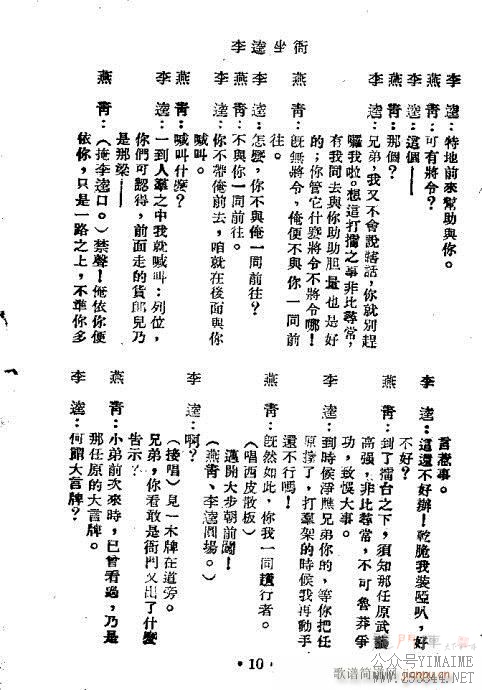 李逵坐衙
李逵：特地前來幫助與你。
燕青：可有將令？
李逵：這個——
燕青：那個？
李逵：兄弟，我又不會說瞎話，你就別趕
囉我啦。想這打擂之事非比尋常，
有我同去與你助助胆量也是好
的；你管它什麽將令不將令哪！
燕青：旣無將令，俺便不與你一同前
往。
李逵：怎麽，你不與俺一同前往？
燕青：不與你一同前往。
李逵：你不帶俺前去，咱就在後面與你
喊叫。
燕青：喊叫什麽？
李逵：一到人羣之中我就喊叫：列位，
你們可認得，前面走的貨郎兒乃
是那梁——
燕青：（掩李逵口。）禁聲！俺依你便
依你，只是一路之上，不準你多
言惹事。
李逵：這還不好辦！乾脆我装啞叭，好
不好？
燕青：到了擂台之下，須知那任原武藝
高强，非比尋常，不可魯莽爭
功，致悞大事。
李逵：到時候淨瞧兄弟你的，等你把任
原摔了，打羣架的時候我再動手
還不行嗎！
燕青：旣然如此，你我一同趱行者。
（唱西皮散板）
邁開大步朝前闖！
（燕青、李逵圓場。）
李逵：啊？
（接唱）見一木牌在道旁。
兄弟，你看敢是衙門又出了什麽
告示？
燕青：小弟前次來時，已曾看過，乃是
那任原的大言牌。
李逵：何謂大言牌？
·10·
歌谱简谱网
公众号YIMAIME